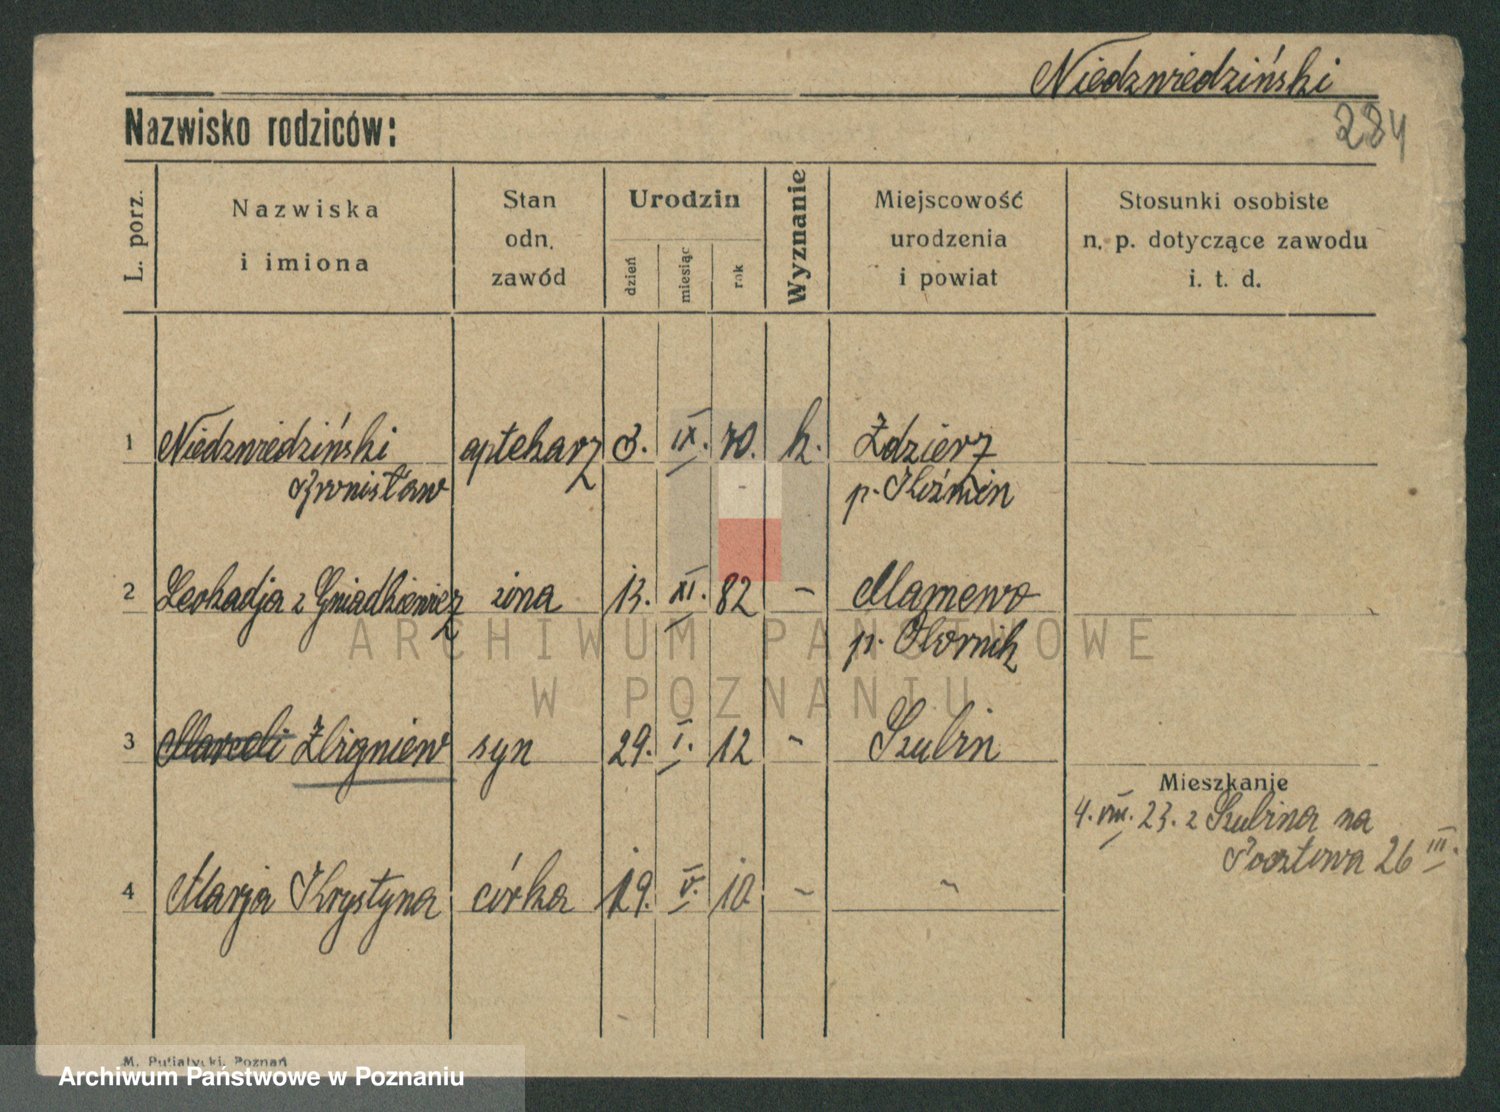 Niedzwiedziński
284
Nazwisko rodziców:
L. porz.
Nazwiska
i imiona
Stan
odn.
zawód
Urodzin
dzień
miesiąc
rok
Wyznanie
Miejscowość
urodzenia
i powiat
Stosunki osobiste
n. p. dotyczące zawodu
i. t. d.
1 Niedzwiedziński aptekarz 3. IX. 70. k. Ździerz
Bronisław p. Koźmin
2 Leokadja z Gniadkiewicz żona 13. XI. 82 –
p. Kórnik
ARCHIWUM PAŃSTWOWE
W POZNANIU
3 Marceli Zbigniew syn 29. I. 12 – Szubin
Mieszkanie
4. VIII. 23. z Szubina na
Pocztowa 26 III.
4 Marja Krystyna córka 19. V. 10. – "
M. Putiatycki, Poznań
Archiwum Państwowe w Poznaniu